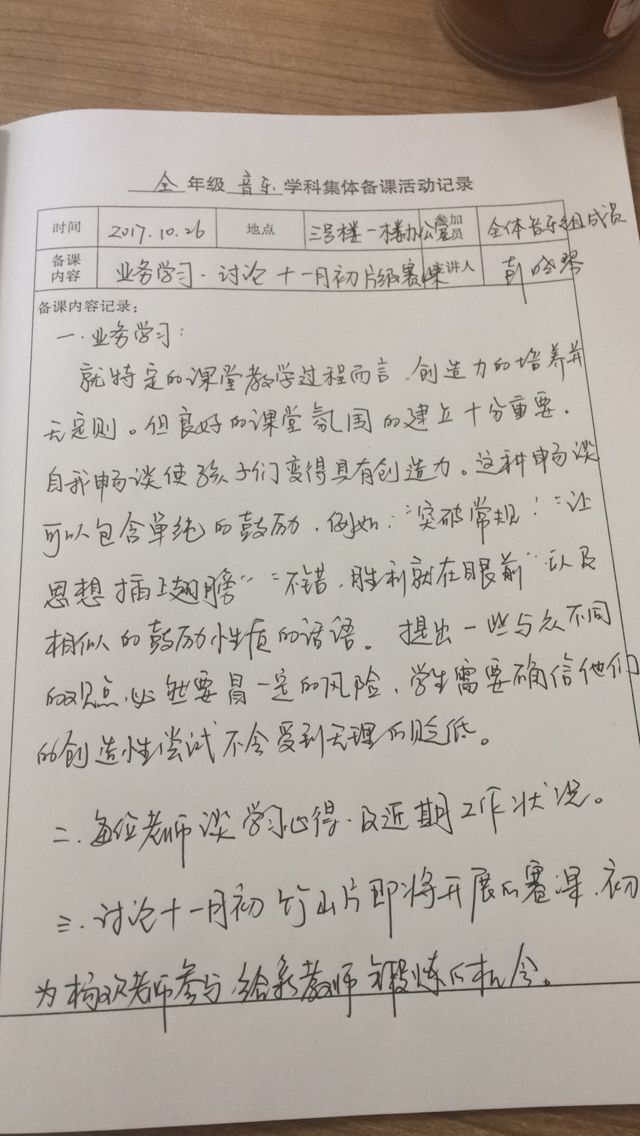 全 年级 音乐 学科集体备课活动记录
时间 2017.10.26 地点 三号楼一楼办公室 参加人员 全体音乐组成员
备课内容 业务学习·讨论十一月初片级赛课 主讲人 彭
备课内容记录：
一.业务学习：
就特定的课堂教学过程而言,创造力的培养并
无定则。但良好的课堂氛围的建立十分重要.
自我畅谈使孩子们变得具有创造力。这种畅谈
可以包含单纯的鼓励,例如:“突破常规！”“让
思想插上翅膀”“不错,胜利就在眼前”以及
相似的鼓励性质的话语。提出一些与众不同
的观点,必然要冒一定的风险,学生需要确信他们
的创造性尝试不会受到无理的贬低。
二.每位老师谈学习心得.及近期工作状况。
三.讨论十一月初竹山片即将开展的赛课.初
为杨欢老师参与,给新教师锻炼的机会。